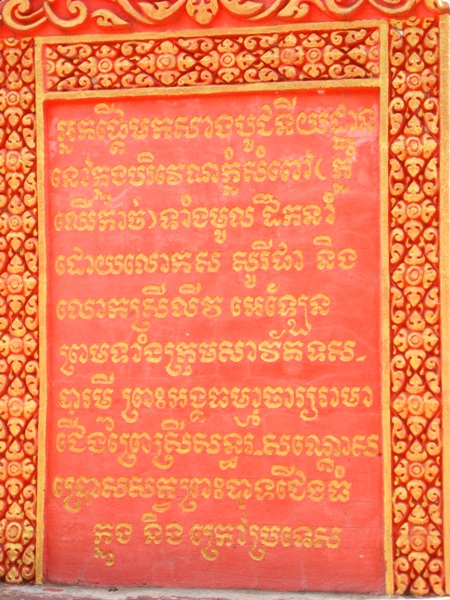 អ្នកផ្ដើមកសាងបូជនីយដ្ឋាន
នៅក្នុងបរិវេណភ្នំសំពៅ(ភ្នំ
ឈើកាច់)ទាំងមូល ដឹកនាំ
ដោយលោកស សូរីផា និង
លោកស្រីលីវ អេឡែន
ព្រមទាំងក្រុមសាវ័កទស
បារមី ព្រះអង្គធម្មាចារ្យរាមា
ជើងព្រៃស្រីសន្ធរ សណ្ដោស
ប្រោសសត្វព្រះបាទជើងធំ
ក្នុង និង ក្រៅប្រទេស